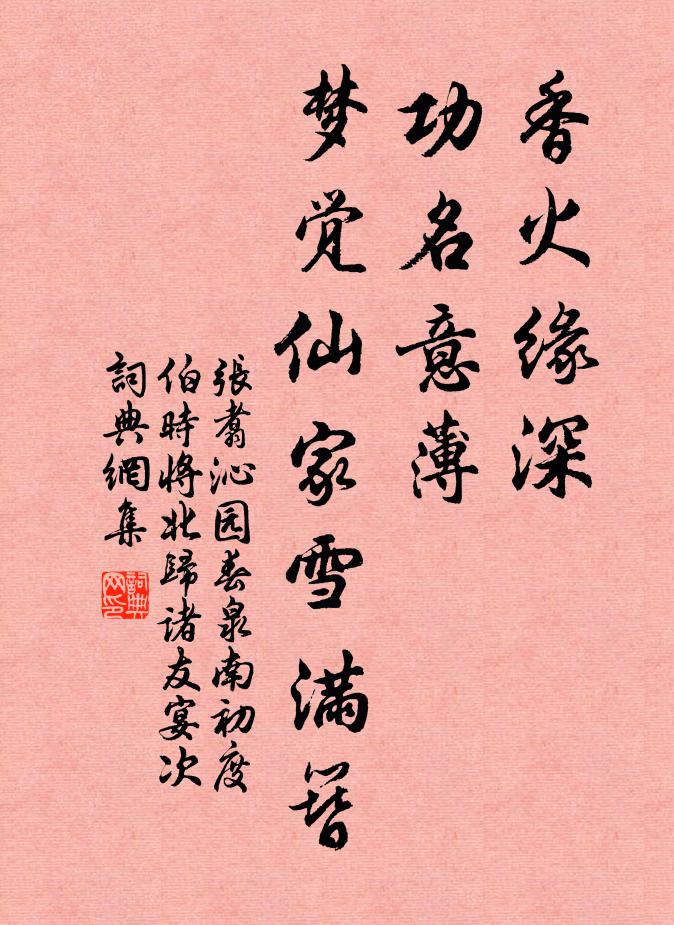 香火缘深
功名意薄
梦觉仙家雪满簪
張翥沁园春泉南初度
伯時將北歸诸友宴次
詞典網集
詞典网印